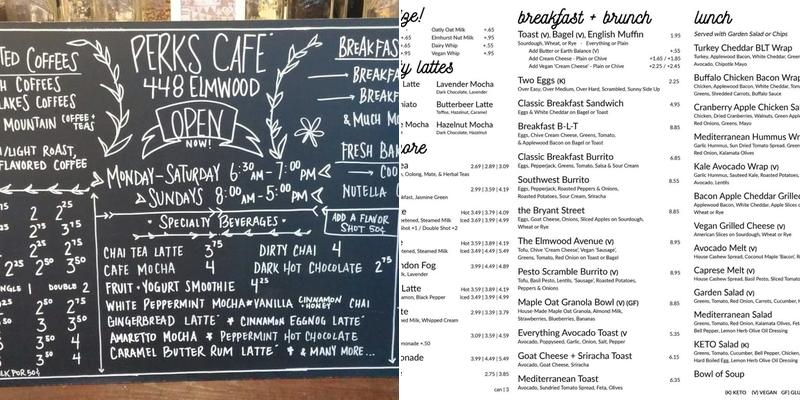 TED COFFEES
H COFFEES
LAKES COFFEES
MOUNTAIN COFFEE + TEAS
/LIGHT ROAST,
FLAVORED COFFEE
2 2²⁵
2⁷⁵ 3¹⁵
2²⁵ 2⁵⁰ 3⁵⁰
NGLE 1 DOUBLE 2
3 3⁵⁰
3⁵⁰ 4
3⁵⁰ 4
ILK FOR 50¢
PERKS CAFE
448 ELMWOOD
OPEN
NOW!
MONDAY-SATURDAY 6:30 AM-7:00 PM
SUNDAYS 8:00 AM-5:00 PM
SPECIALTY BEVERAGES
CHAI TEA LATTE 3⁷⁵ DIRTY CHAI 4
CAFE MOCHA 4 DARK HOT CHOCOLATE 2⁷⁵
FRUIT+YOGURT SMOOTHIE 4²⁵
WHITE PEPPERMINT MOCHA*VANILLA CINNAMON HONEY CHAI
GINGERBREAD LATTE * CINNAMON EGGNOG LATTE
AMARETTO MOCHA * PEPPERMINT HOT CHOCOLATE
CARAMEL BUTTER RUM LATTE * & MANY MORE...
BREAKFAS
BREAKF
BREAKF
& MUCH MO
FRESH BAK
COO
NUTELLA
ADD A FLAVOR
SHOT 50¢
ze!
+.65 Oatly Oat Milk +.65
+.65 Elmhurst Nut Milk +.95
Dairy Whip +.55
Vegan Whip +.95
y lattes
Latte Lavender Mocha
Dark Chocolate, Lavender
iato Butterbeer Latte
Toffee, Hazelnut, Caramel
Mocha Hazelnut Mocha
Dark Chocolate, Hazelnut
ore
ea 2.69 | 2.89 | 3.09
, Oolong, Mate, & Herbal Teas
2.99 | 3.59 | 4.19
kfast, Jasmine Green
te Hot 3.49 | 3.79 | 4.09
eetened, Steamed Milk Iced 3.69 | 3.99 | 4.99
Shot +1 / Double Shot +2
e Hot 3.59 | 3.89 | 4.19
tened, Steamed Milk Iced 3.49 | 3.99 | 4.49
ndon Fog 3.99 | 4.49 | 4.89
ilk, Lavender
Latte Hot 3.59 | 3.89 | 4.19
namon, Black Pepper Iced 3.49 | 3.99 | 4.99
te 2.99 | 3.39 | 3.79
med Milk, Whipped Cream
3.09 | 3.59 | 4.59
monade +.50
onade 3.99 | 4.49 | 5.49
2.75 | 3.85
can | 3
breakfast + brunch
Toast (V), Bagel (V), English Muffin 1.95
Sourdough, Wheat, or Rye - Everything or Plain
Add Butter or Earth Balance (V) +.55
Add Cream Cheese - Plain or Chive +1.65 / +1.85
Add Vegan 'Cream Cheese' - Plain or Chive +2.25 / +2.45
Two Eggs (K) 2.25
Over Easy, Over Medium, Over Hard, Scrambled, Sunny Side Up
Classic Breakfast Sandwich 4.95
Eggs & White Cheddar on Bagel or Toast
Breakfast B-L-T 8.85
Eggs, Chive Cream Cheese, Greens, Tomato,
& Applewood Bacon on Bagel or Toast
Classic Breakfast Burrito 6.85
Eggs, Pepperjack, Greens, Tomato, Salsa & Sour Cream
Southwest Burrito 8.55
Eggs, Pepperjack, Roasted Peppers & Onions,
Roasted Potatoes, Sour Cream, Sriracha
the Bryant Street 8.85
Eggs, Goat Cheese, Onions, Sliced Apples on Sourdough,
Wheat or Rye
The Elmwood Avenue (V) 8.95
Tofu, Chive 'Cream Cheese', Vegan 'Sausage',
Greens, Tomato, Red Onion on Toast or Bagel
Pesto Scramble Burrito (V) 8.95
Tofu, Basil Pesto, Lentils, 'Sausage', Roasted Potatoes,
Peppers & Onions
Maple Oat Granola Bowl (V) (GF) 8.85
House-Made Maple Oat Granola, Almond Milk,
Strawberries, Blueberries, Bananas
Everything Avocado Toast (V) 5.35
Avocado, Poppyseed, Garlic, Onion, Salt, Pepper
Goat Cheese + Sriracha Toast 6.15
Avocado, Goat Cheese, Sriracha
Mediterranean Toast 6.35
Avocado, Sundried Tomato Spread, Feta, Olives
lunch
Served with Garden Salad or Chips
Turkey Cheddar BLT Wrap
Turkey, Applewood Bacon, White Cheddar, Green
Avocado, Chipotle Mayo
Buffalo Chicken Bacon Wrap
Chicken, Applewood Bacon, White Cheddar,
Greens, Shredded Carrots, Buffalo Sauce
Cranberry Apple Chicken Sa
Chicken, Dried Cranberries, Walnuts, Green Apple
Red Onions, Greens, Mayo
Mediterranean Hummus Wr
Garlic Hummus, Sun Dried Tomato Spread, Green
Red Onion, Kalamata Olives
Kale Avocado Wrap (V)
Garlic Hummus, Sauteed Kale, Roasted Potatoes,
Avocado, Lentils
Bacon Apple Cheddar Grilled
Applewood Bacon, White Cheddar, Apple Slices o
Wheat or Rye
Vegan Grilled Cheese (V)
American Slices on Sourdough, Wheat or Rye
Avocado Melt (V)
House Cashew Spread, Coconut Maple 'Bacon', R
Caprese Melt (V)
House Cashew Spread, Basil Pesto, Sliced Tomato
Garden Salad (V)
Greens, Tomato, Red Onion, Carrots, Cucumber,
Mediterranean Salad
Greens, Tomato, Red Onion, Kalamata Olives, Fet
Bell Pepper, Lemon Herb Olive Oil Dressing
KETO Salad (K)
Greens, Tomato, Cucumber, Bell Pepper, Chicken,
Hard Boiled Egg, Lemon Herb Olive Oil Dressing
Bowl of Soup
(K) KETO (V) VEGAN GF) GLU